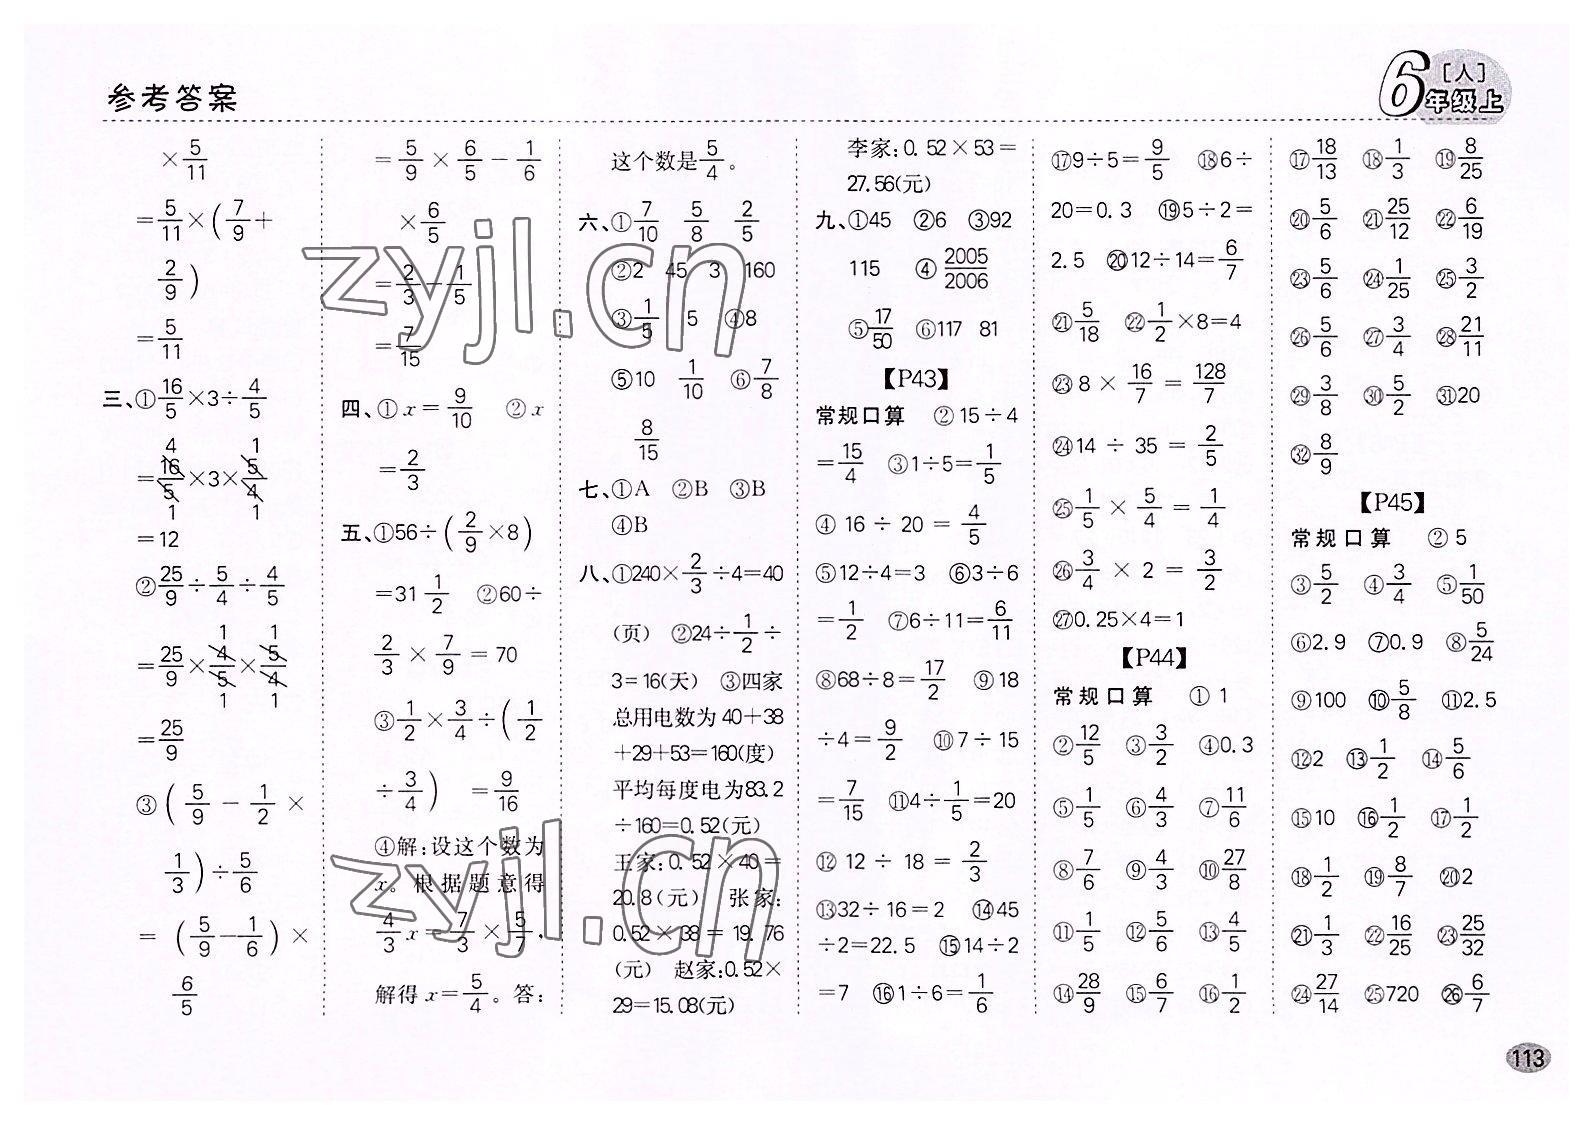 参考答案
6[人]年级上
×5/11
=5/11×(7/9+
2/9)
=5/11
三、①16/5×3÷4/5
=16/5×3×5/4
4 1
1 1
=12
②25/9÷5/4÷4/5
=25/9×4/5×5/4
1 1
1 1
=25/9
③(5/9-1/2×
1/3)÷5/6
=(5/9-1/6)×
6/5
=5/9×6/5-1/6
×6/5
=2/3-1/5
=7/15
四、①x=9/10 ②x
=2/3
五、①56÷(2/9×8)
=31 1/2 ②60÷
2/3×7/9=70
③1/2×3/4÷(1/2
÷3/4) =9/16
④解:设这个数为
x。根据题意得
4/3x=7/3×5/7,
解得x=5/4。答:
这个数是5/4。
六、①7/10 5/8 2/5
②2 45 3 160
③1/5 5 ④8
⑤10 1/10 ⑥7/8
8/15
七、①A ②B ③B
④B
八、①240×2/3÷4=40
(页) ②24÷1/2÷
3=16(天) ③四家
总用电数为40+38
+29+53=160(度)
平均每度电为83.2
÷160=0.52(元)
王家:0.52×40=
20.8(元) 张家:
0.52×38=19.76
(元) 赵家:0.52×
29=15.08(元)
李家:0.52×53=
27.56(元)
九、①45 ②6 ③92
115 ④2005/2006
⑤17/50 ⑥117 81
【P43】
常规口算 ②15÷4
=15/4 ③1÷5=1/5
④16÷20=4/5
⑤12÷4=3 ⑥3÷6
=1/2 ⑦6÷11=6/11
⑧68÷8=17/2 ⑨18
÷4=9/2 ⑩7÷15
=7/15 ⑪4÷1/5=20
⑫12÷18=2/3
⑬32÷16=2 ⑭45
÷2=22.5 ⑮14÷2
=7 ⑯1÷6=1/6
⑰9÷5=9/5 ⑱6÷
20=0.3 ⑲5÷2=
2.5 ⑳12÷14=6/7
㉑5/18 ㉒1/2×8=4
㉓8×16/7=128/7
㉔14÷35=2/5
㉕1/5×5/4=1/4
㉖3/4×2=3/2
㉗0.25×4=1
【P44】
常规口算 ①1
②12/5 ③3/2 ④0.3
⑤1/5 ⑥4/3 ⑦11/6
⑧7/6 ⑨4/3 ⑩27/8
⑪1/5 ⑫5/6 ⑬4/5
⑭28/9 ⑮6/7 ⑯1/2
⑰18/13 ⑱1/3 ⑲8/25
⑳5/6 ㉑25/12 ㉒6/19
㉓5/6 ㉔1/25 ㉕3/2
㉖5/6 ㉗3/4 ㉘21/11
㉙3/8 ㉚5/2 ㉛20
㉜8/9
【P45】
常规口算 ②5
③5/2 ④3/4 ⑤1/50
⑥2.9 ⑦0.9 ⑧5/24
⑨100 ⑩5/8 ⑪2.5
⑫2 ⑬1/2 ⑭5/6
⑮10 ⑯1/2 ⑰1/2
⑱1/2 ⑲8/7 ⑳2
㉑1/3 ㉒16/25 ㉓25/32
㉔27/14 ㉕720 ㉖6/7
113
zyjl.cn
zyjl.cn